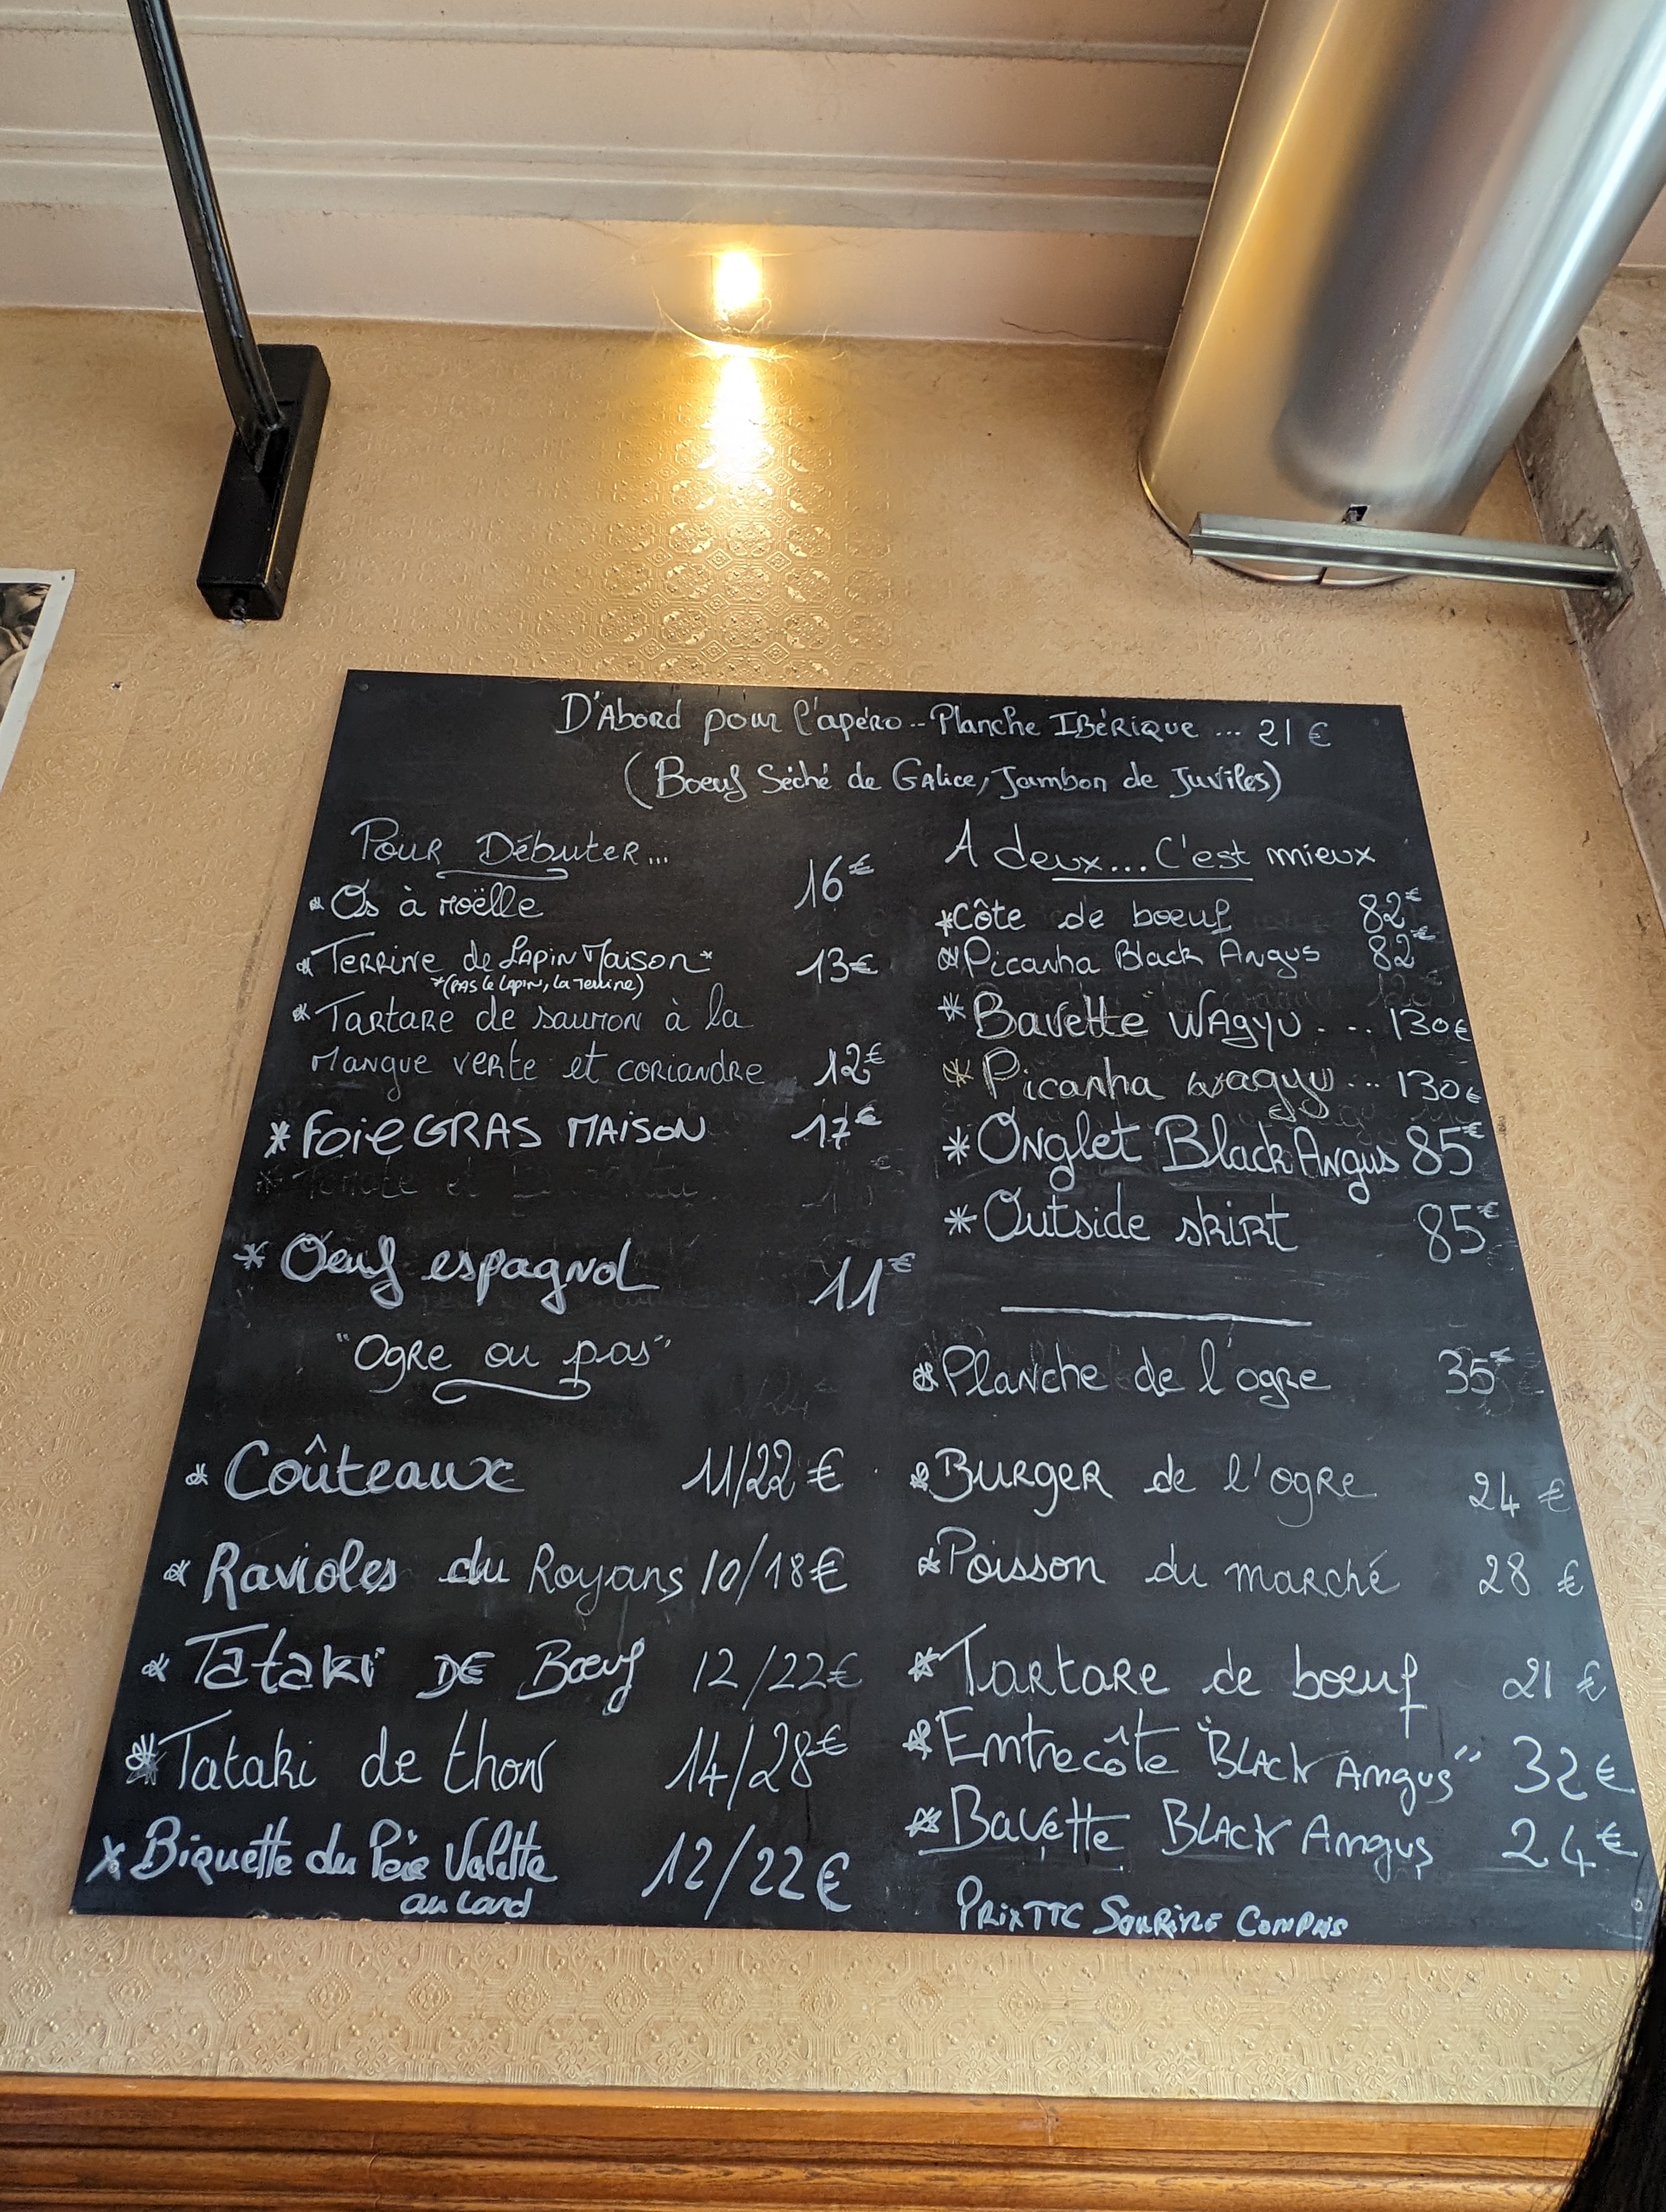 D'Abord pour l'apéro.. Planche Ibérique ... 21 €
(Boeuf Séché de Galice, Jambon de Juviles)
Pour Débuter...
* Os à moëlle 16€
* Terrine de Lapin Maison* 13€
*(pas le lapin, la terrine)
* Tartare de saumon à la
mangue verte et coriandre 12€
* Foie GRAS MAISON 17€
* Oeuf espagnol 11€
"Ogre ou pas"
* Coûteaux 11/22 €
* Ravioles du Royans 10/18€
* Tataki DE Bœuf 12/22€
* Tataki de thon 14/28€
* Biquette du Père Valette 12/22€
au lard
A deux... C'est mieux
* Côte de boeuf 82€
* Picanha Black Angus 82€
* Bavette WAgyu .... 130€
* Picanha wagyu ... 130€
* Onglet Black Angus 85€
* Outside skirt 85€
* Planche de l'ogre 35€
* Burger de l'ogre 24 €
* Poisson du marché 28 €
* Tartare de boeuf 21 €
* Entrecôte "Black Angus" 32€
* Bavette Black Angus 24€
Prix TTC Service Compris